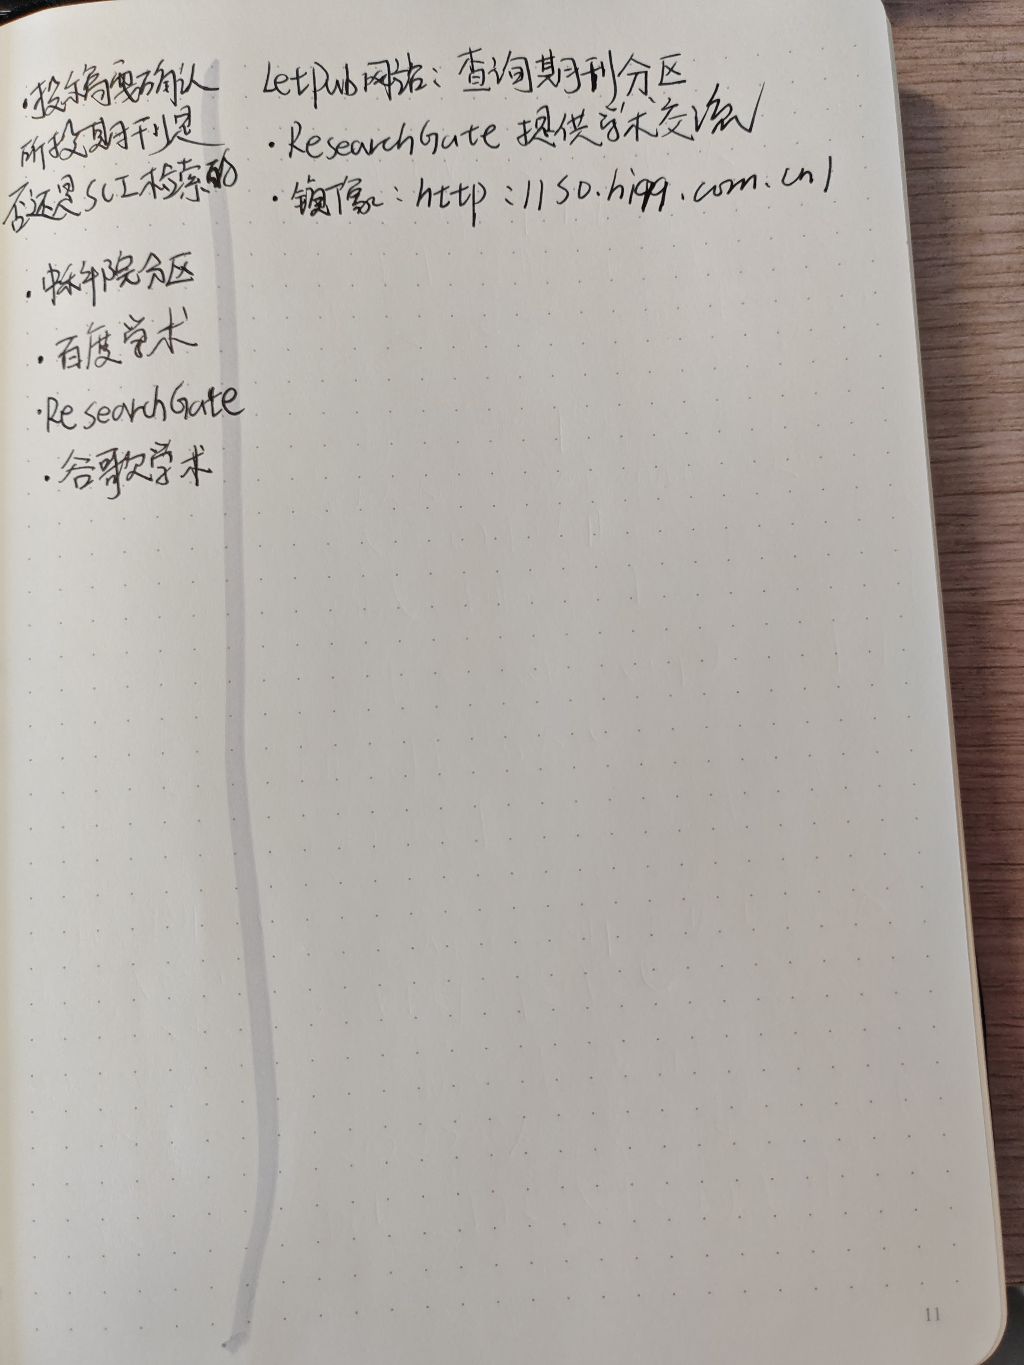 ·投稿需确认
所投期刊是
否还是SCI检索的
·中科院分区
·百度学术
·ResearchGate
·谷歌学术
LetPub网站：查询期刊分区
·ResearchGate 提供学术交流
·镜像：http://so.hiqq.com.cn/
11